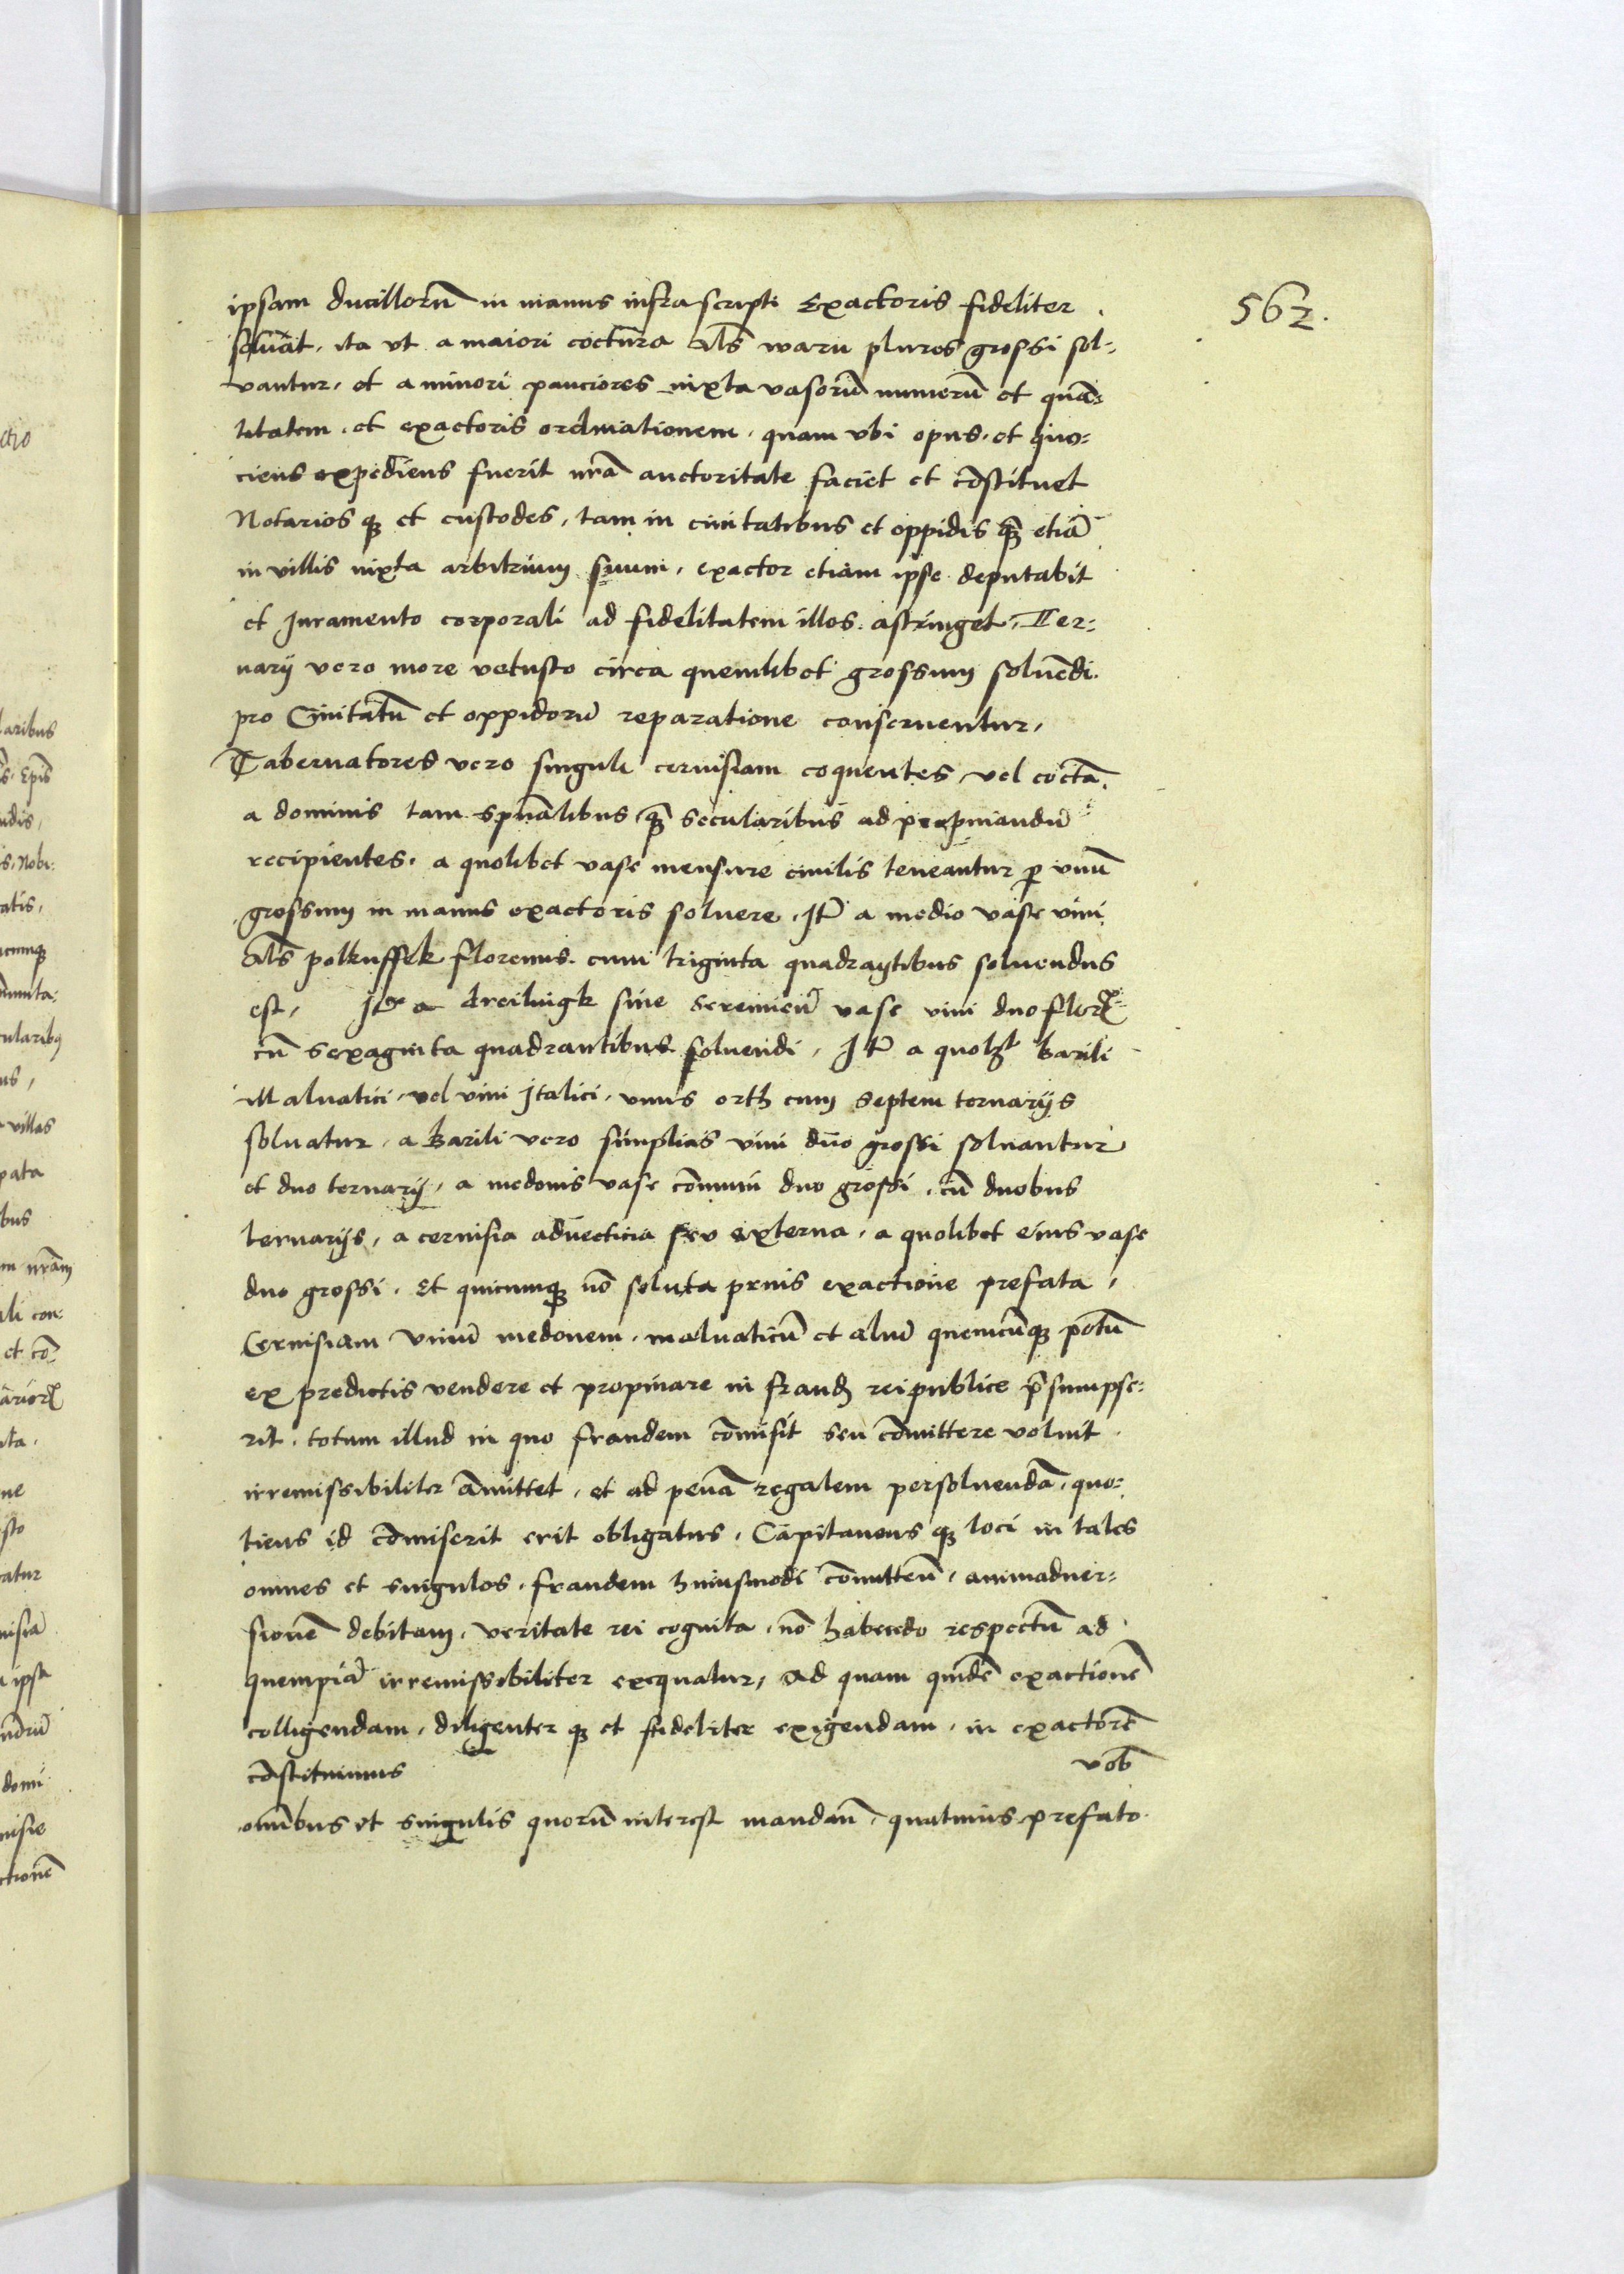 562.
ipsam ducillorū in manus infrascripti Exactoris fideliter
soluāt, ita vt a maiori coctura als̄ waru plures grossi sol-
vantur, et a minori pauciores iuxta vasorū numerū et quā-
titatem, et exactoris ordinationem, quam vbi opus, et quo-
ciens expediens fuerit nr̄a auctoritate faciet et cōstituet
Notarios qȝ et custodes, tam in ciuitatibus et oppidis qȝ̄ etiā
in villis iuxta arbitrium suum, exactor etiam ipse deputabit
et Juramento corporali ad fidelitatem illos astringet, Ter-
narij vero more vetusto circa quemlibet grossum soluēdi
pro Ciuitatū et oppidorū reparatione conseruentur,
Tabernatores vero singuli ceruisiam coquentes, vel coctā
a dominis tam spūalibus qȝ̄ secularibus ad propinandū
recipientes, a quolibet vase mensure ciuilis teneantur ꝑ vnū
grossum in manus exactoris soluere, Itē a medio vase vini
als̄ polkuffek florenus cum triginta quadrantibus soluendus
est, Itē a dreilingk siue Seremiēn̄ vase vini duo florꝝ
cū sexaginta quadrantibus soluendi, Itē a quolȝt barili
Maluatici, vel vini Italici, vnus orth cum septem ternarijs
soluatur, a barili vero simplicis vini duo grossi soluantur
et duo ternarij, a medonis vase cōmuni duo grossi, cū duobus
ternarijs, a ceruisia aduecticia seu externa, a quolibet eius vase
duo grossi, Et quicumqȝ nō soluta prius exactione prefata,
Ceruisiam Vinū medonem, maluaticū et aliū quemcūqȝ potū
ex predictis vendere et propinare in fraudȝ reipublice p̄sumpse-
rit, totum illud in quo fraudem cōmisit seu cōmittere voluit
irremissibiliter āmittet, et ad penā regalem persoluendā, quo-
tiens id cōmiserit erit obligatus, Capitaneus qȝ loci in tales
omnes et singulos, fraudem huiusmodi cōmitten̄, animaduer-
sionē debitam, veritate rei cognita, nō habendo respectū ad
quempiā irremissibiliter exequatur, Ad quam quidē exactionē
colligendam, diligenter qȝ et fideliter exigendam, in exactorē
cōstituimus vob̄
omībus et singulis quorū interest mandam̄, quatinus prefato